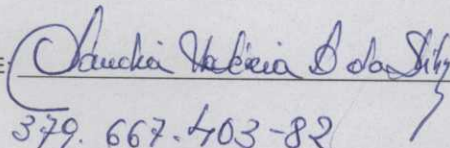 E
Claudia Valéria B da Silva
379. 667.403-82